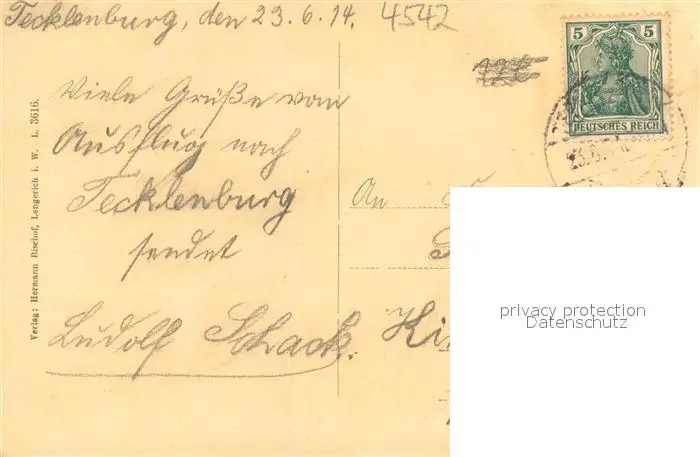 Tecklenburg, den 23.6.14. 4542
Viele Grüße vom
Ausflug nach
Tecklenburg
sendet
Ludolf Schack.
Verlag: Hermann Bischof, Lengerich i. W. L. 3616.
5 5
DEUTSCHES REICH
23.6.
An
privacy protection
Datenschutz